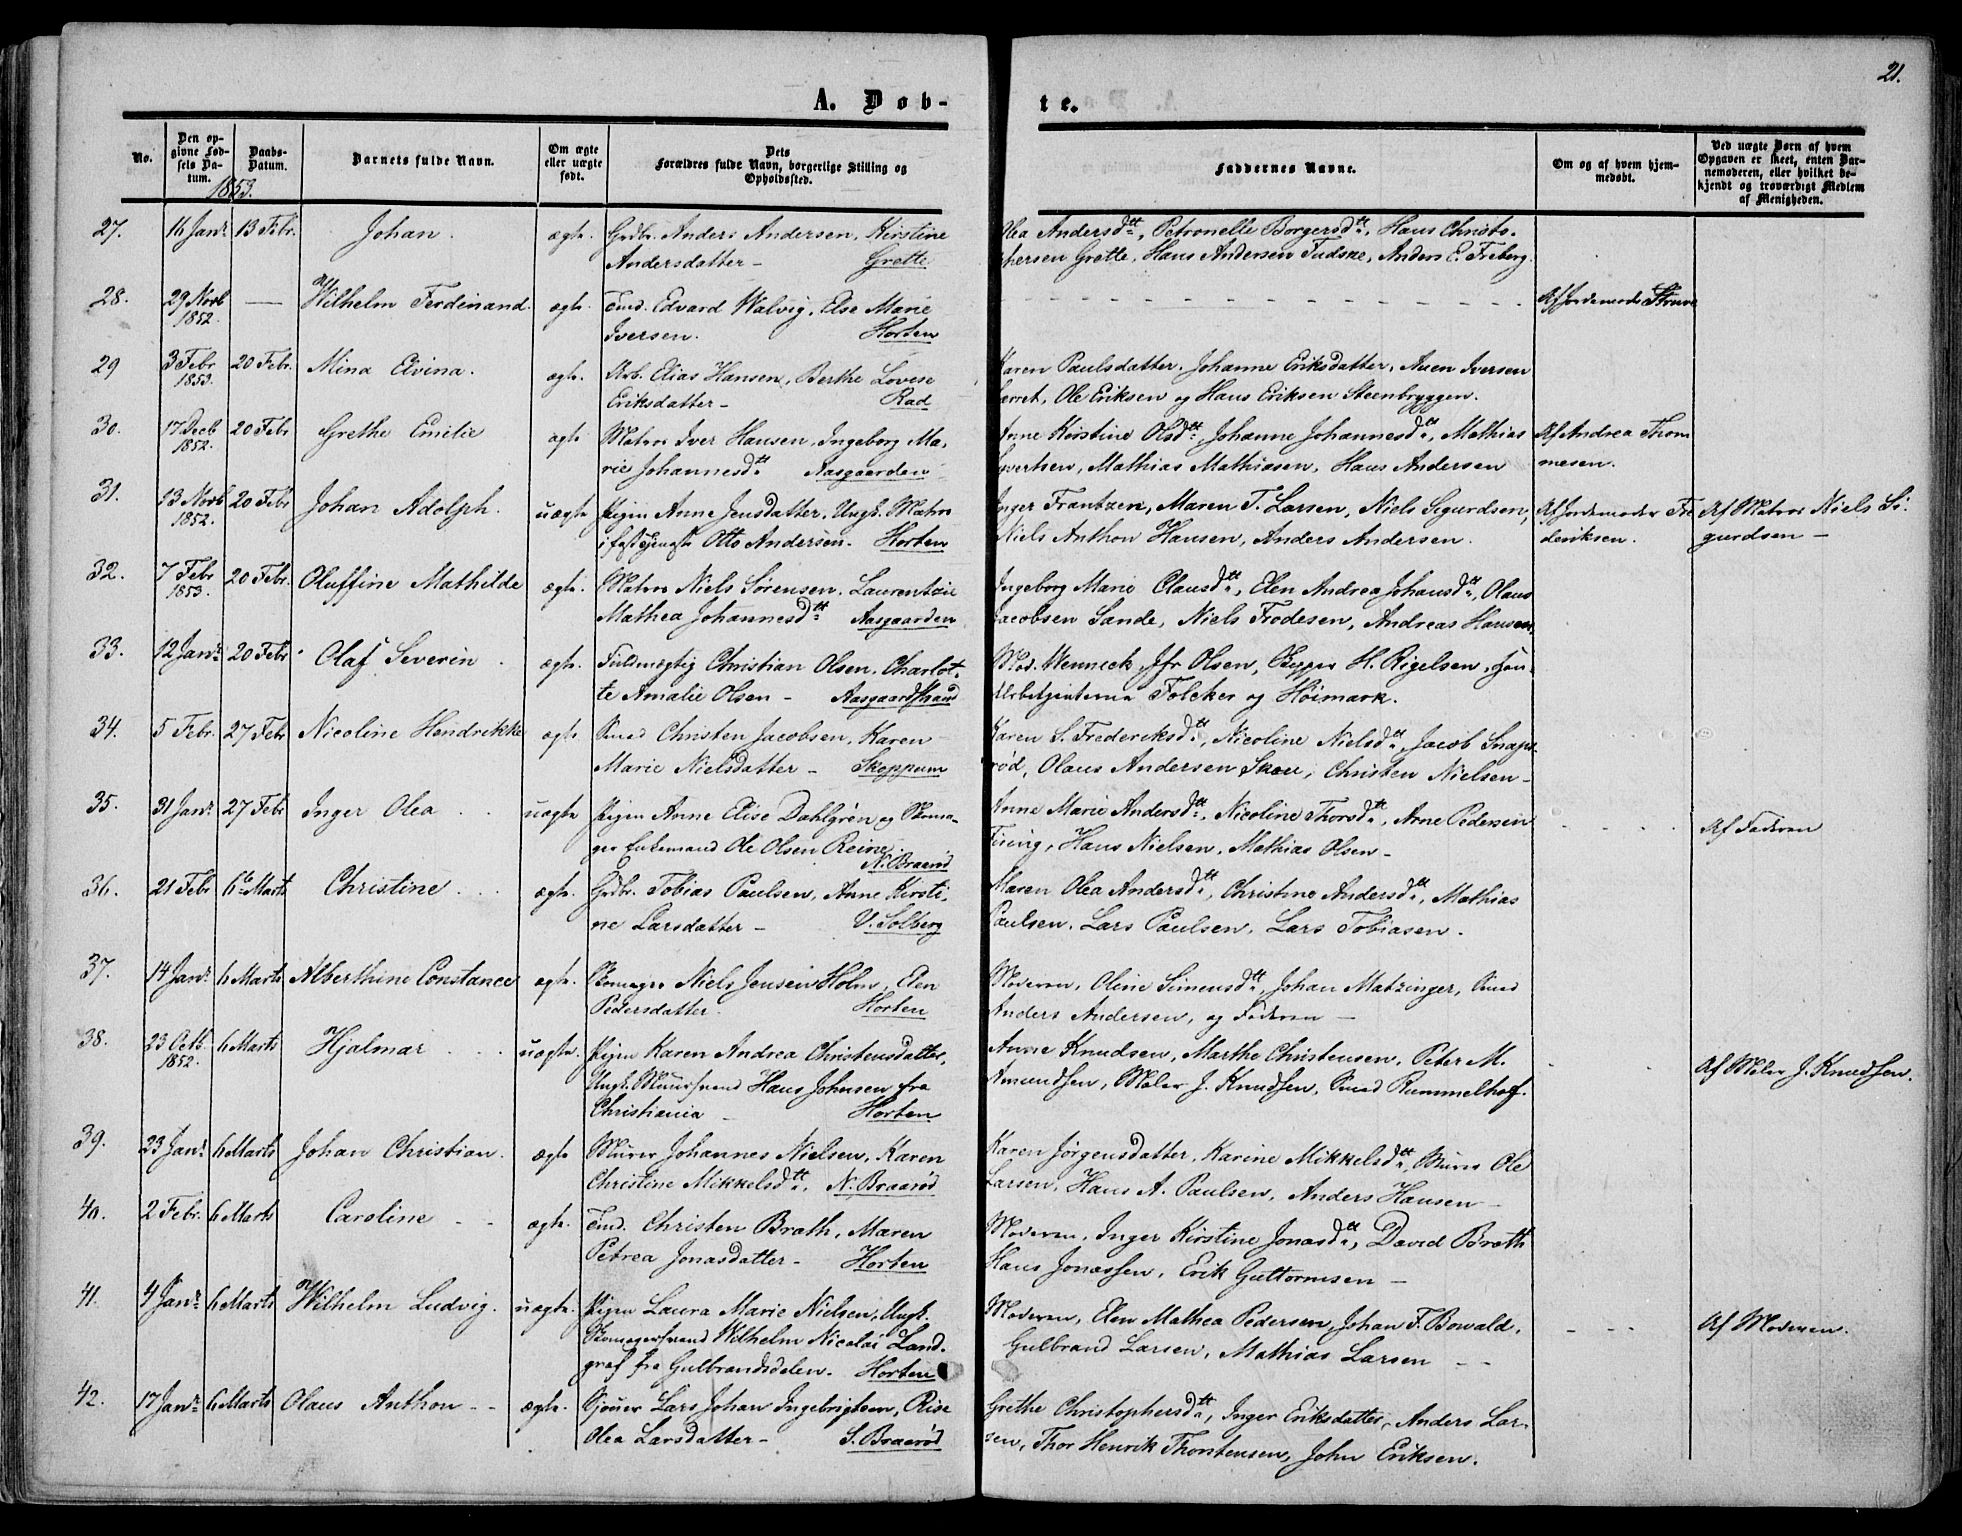 21.
A. Døb-
te.
No.
Den op-
givne Fød-
sels Da-
tum.
Daabs-
Datum.
Barnets fulde Navn.
Om ægte
eller uægte
født.
Dets
Forældres fulde Navn, borgerlige Stilling og
Opholdssted.
Faddernes Navne.
Om og af hvem hjem-
medøbt.
Ved uægte Børn af hvem
Opgaven er skeet, enten Bar-
nemoderen, eller hvilket be-
kjendt og troværdigt Medlem
af Menigheden.
1853.
27. 16 Janr. 13 Febr. Johan. ægte. Grdbr. Anders Andersen, Kirstine
Andersdatter - Grette
Olea Andersdtt, Petronelle Borgersdtt, Hans Christo-
phersen Grette, Hans Andersen Fudske, Anders E. Freberg.
28. 29 Novb 1852. — Wilhelm Ferdinand. ægte. Tmd. Edvard Walvig, Else Marie
Iversen. Horten
Af Jordemoder Struve
29 3 Febr 1853. 20 Febr. Mina Elvina. ægte. Arb. Elias Hansen, Berthe Lovise
Eriksdatter - Rad
Karen Paulsdatter, Johanne Eriksdatter, Auen Iversen
Ole Eriksen og Hans Eriksen Steenbryggen.
30. 17 Decb 1852. 20 Febr Grethe Emilie ægte Matros Iver Hansen, Ingeborg Ma-
rie Johannesdtt Aasgaarden
Anne Kirstine Olsdtt, Johanne Johannesdtt, Mathias
Evertsen, Mathias Mathiasen, Hans Andersen
Af Andrea Thom
mesen.
31. 13 Novb 1852. 20 Febr Johan Adolph. uægte Pigen Anne Jensdatter, Ungk. Matros
i fast Tjeneste Otto Andersen. Horten
Inger Frantzen, Maren T. Larsen, Niels Sigurdsen,
Niels Anthon Hansen, Anders Andersen.
Af Jordemoder Fre
deriksen.
Af Matros Niels Si-
gurdsen -
32. 7 Febr 1853. 20 Febr. Oluffine Mathilde ægte. Matros Niels Sørensen, Laurentzie
Mathea Johannesdtt Aasgaarden
Ingeborg Marie Clausdtt, Elen Andrea Johansdtt, Olaus
Jacobsen Sande, Niels Frodesen, Andreas Hansen.
33. 12 Janr. 20 Febr Olaf Severin ægte. Fuldmægtig Christian Olsen, Charlot-
te Amalie Olsen - Aasgaardstrand
Mad. Wennick, Jfr Olsen, Skipper H. Rigelsen,
Folcker og Høimark.
34. 5 Febr. 27 Febr Nicoline Hendrikke ægte Smed Christen Jacobsen, Karen
Marie Nielsdatter - Skoppum
Karen S. Frederiksdtt, Nicoline Nielsdtt, Jacob Snaps-
rød, Olaus Andersen Skou, Christen Nielsen -
35. 31 Janr. 27 Febr Inger Olea uægte Pigen Anne Elise Dahlgrén og Skoma-
ger Enkemand Ole Olsen Reine.
N. Braarød
Anne Marie Andersdtt, Nicoline Thorsdtt, Arne Pedersen
Hans Nielsen, Mathias Olsen -
Af Faderen
36. 21 Febr 6te Marts Christine ægte. Grdbr. Tobias Paulsen, Anne Kirsti-
ne Larsdatter - V. Solberg
Maren Olea Andersdtt, Christine Andersdtt, Mathias
Paulsen, Lars Paulsen, Lars Tobiasen.
37. 14 Janr. 6 Marts Alberthine Constance ægte. Skomager Niels Jensen Holm, Elen
Pedersdatter. Horten
Moderen, Oline Simensdtt, Johan Matzinger, Smed
Anders Andersen, og Faderen -
38. 23 Octb 1852. 6 Marts Hjalmar uægte. Pigen Karen Andrea Christensdatter,
Ungk. Muursvend Hans Johnsen fra
Christiania - Horten
Anne Knudsen, Marthe Christensen, Peter M.
Amundsen, Maler J. Knudsen, Smed Rummelhof.
Af Maler J. Knudsen.
39. 23 Janr. 6 Marts Johan Christian. ægte Murer Johannes Nielsen, Karen
Christine Mikkelsdtt. N. Braarød
Karen Jørgensdatter, Karine Mikkelsdtt, Murer Ole
Larsen, Hans A. Paulsen, Anders Hansen -
40. 2 Febr. 6 Marts Caroline ægte. Tmd. Christen Brath, Maren
Petrea Jonasdatter - Horten
Moderen, Inger Kirstine Jonasdtt, David Brath
Hans Jonassen, Erik Guttormsen -
41. 4 Janr. 6 Marts Wilhelm Ludvig. uægte. Pigen Laura Marie Nielsen, Ungk.
Skomagersvend Wilhelm Nicolai Land-
graf fra Gulbrandsdalen. Horten
Moderen, Elen Mathea Pedersen, Johan F. Bowald,
Gulbrand Larsen, Mathias Larsen -
Af Moderen.
42. 17 Janr. 6 Marts Olaus Anthon ægte. Gjøver Lars Johan Ingebrigtsen, Rise
Olea Larsdatter - S. Braarød
Grethe Christophersdtt, Inger Eriksdatter, Anders Lar-
sen, Thor Henrik Thorstensen, John Eriksen.